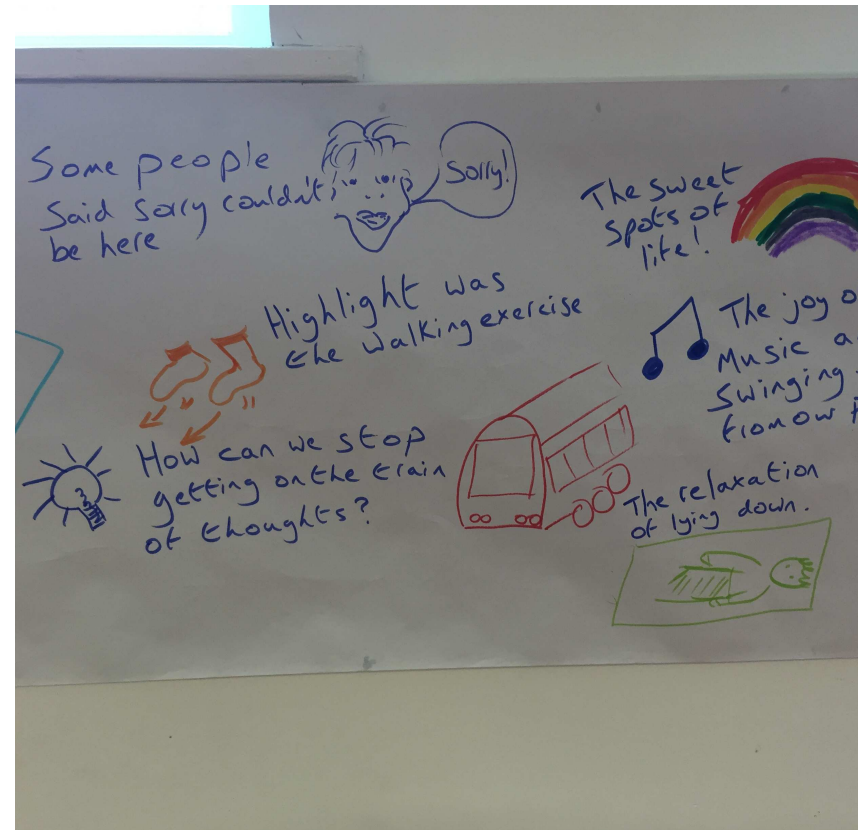 Some people
Said sorry couldn't
be here
Sorry!
The sweet
spots of
life!
Highlight was
the walking exercise
The joy
Music
Swinging
from our
How can we stop
getting on the train
of thoughts?
The relaxation
of lying down.